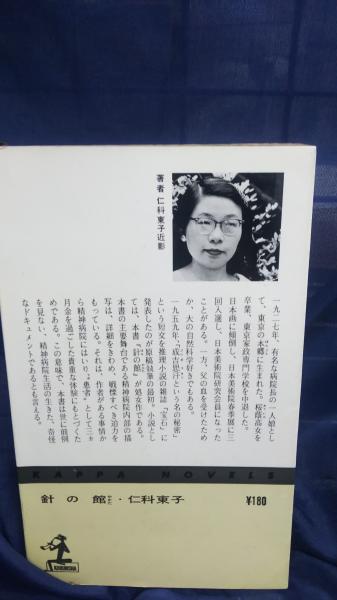 著者 仁科東子近影
一九二七年、有名な病院長の一人娘とし
て、東京の本郷に生まれた。桜蔭高女を
卒業、東京家政専門学校を中退した。
日本画に傾倒し、日本美術院春季展に三
回入選し、日本美術院研究会員になった
ことがある。一方、父の血を受けたため
か、大の自然科学好きでもある。
一九五九年、「成吉思汗という名の秘密」
という短文を推理小説の雑誌「宝石」に
発表したのが原稿執筆の最初。小説とし
ては、本書『針の館』が処女作である。
本書の主要舞台である精神病院内部の描
写は、詳細をきわめ、戦慄すべき迫力を
もっている。それは、作者がある事情か
ら精神病院にはいり、"患者"として三ヵ
月余を過ごした貴重な体験にもとづくた
めである。この意味で、本書は世に前例
を見ない、精神病院生活の生きた、奇怪
なドキュメントであるとも言える。
KAPPA NOVELS
針の館・仁科東子
¥180
KOBUNSHA